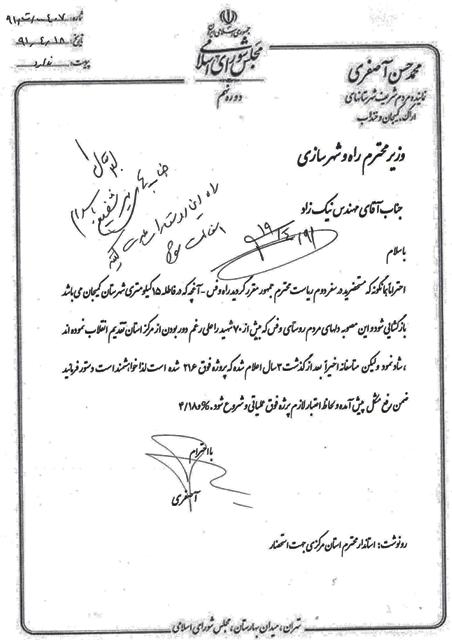 شماره ۴۰۷/ت/۹۱
تاریخ ۹۱،۴،۱۸
پیوست ندارد
جمهوری اسلامی ایران
مجلس شورای اسلامی
دوره نهم
محمد حسن آصفری
نماینده مردم شریف شهرستانهای
اراک، کمیجان و خنداب
وزیر محترم راه و شهرسازی
جناب آقای مهندس نیک زاد
جناب
راه این روستا را
۹۱/۴/۱۹
باسلام
احتراماً همانگونه که مستحضرید در سفر دوم ریاست محترم جمهور مقرر گردید راه وفس - آمچه که در فاصله ۱۵ کیلومتری شهرستان کمیجان می باشد
بازگشایی شود و این مصوبه دلهای مردم روستای وفس که بیش از ۷۰ شهید را علی رغم دور بودن از مرکز استان تقدیم انقلاب نموده اند
، شاد نمود ولیکن متاسفانه اخیراً بعد از گذشت ۲ سال اعلام شده که پروژه فوق ۲۱۶ شده است لذا خواهشمند است دستور فرمائید
ضمن رفع مشکل پیش آمده و لحاظ اعتبار لازم پرژه فوق عملیاتی و شروع شود.
بااحترام
آصفری
رونوشت: استاندار محترم استان مرکزی جهت استحضار
تهران، میدان بهارستان، مجلس شورای اسلامی